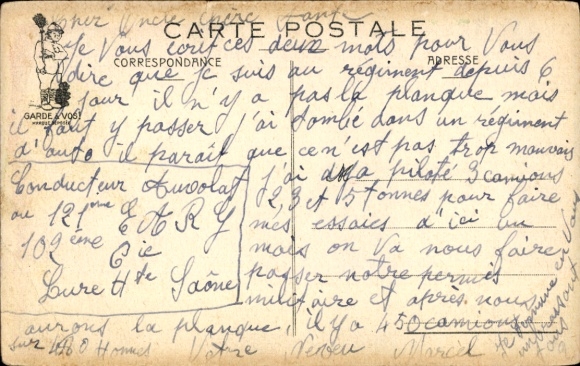 Cher Oncle Chère Tante
CARTE POSTALE
Je Vous écrit ces deux mots pour Vous
CORRESPONDANCE
ADRESSE
dire que je suis au régiment depuis 6
jour il n'y a pas la planque mais
GARDE A VOS!
MARQUE DÉPOSÉE
il faut y passer j'ai tombé dans un régiment
d'auto il parait que ce n'est pas trop mauvais
j'ai piloté 3 camions
2, 3 et 15 tonnes pour faire
més essaies d'ici un
mois on Va nous faire
passer notre permis
militaire et après nous
Conducteur Auvolat
au 121ème E A R G
102ème Cie
Lure Hte Saône
aurons la planque, il y a 450 camions
sur 480 Hommes Votre Neveu Marcel
Je termine en Vous
embrassant
tous